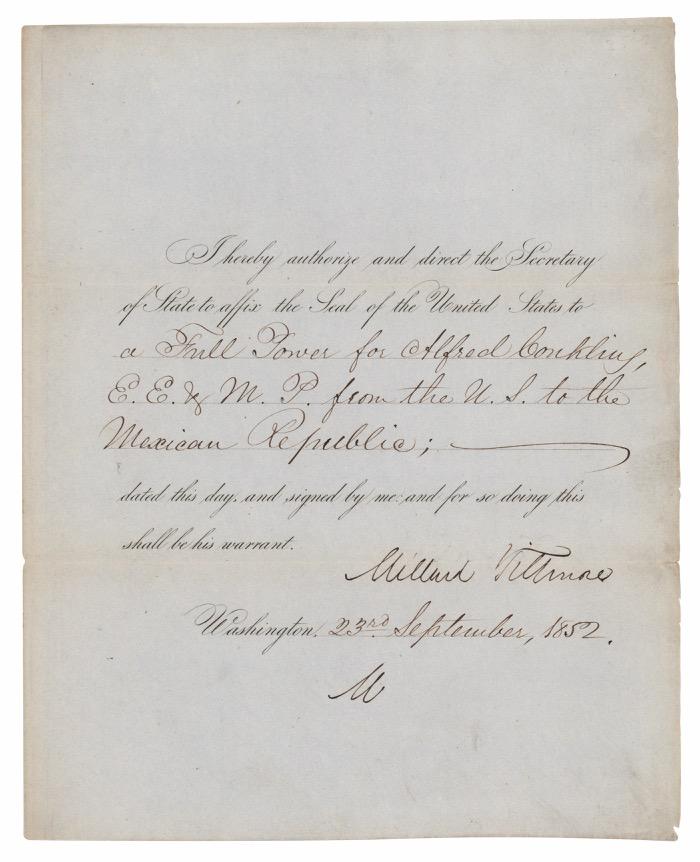 I hereby authorize and direct the Secretary
of State to affix the Seal of the United States to
a Full Power for Alfred Conkling,
E. E. & M. P. from the U. S. to the
Mexican Republic;
dated this day, and signed by me: and for so doing this
shall be his warrant.
Millard Fillmore
Washington, 23rd September, 1852.
M